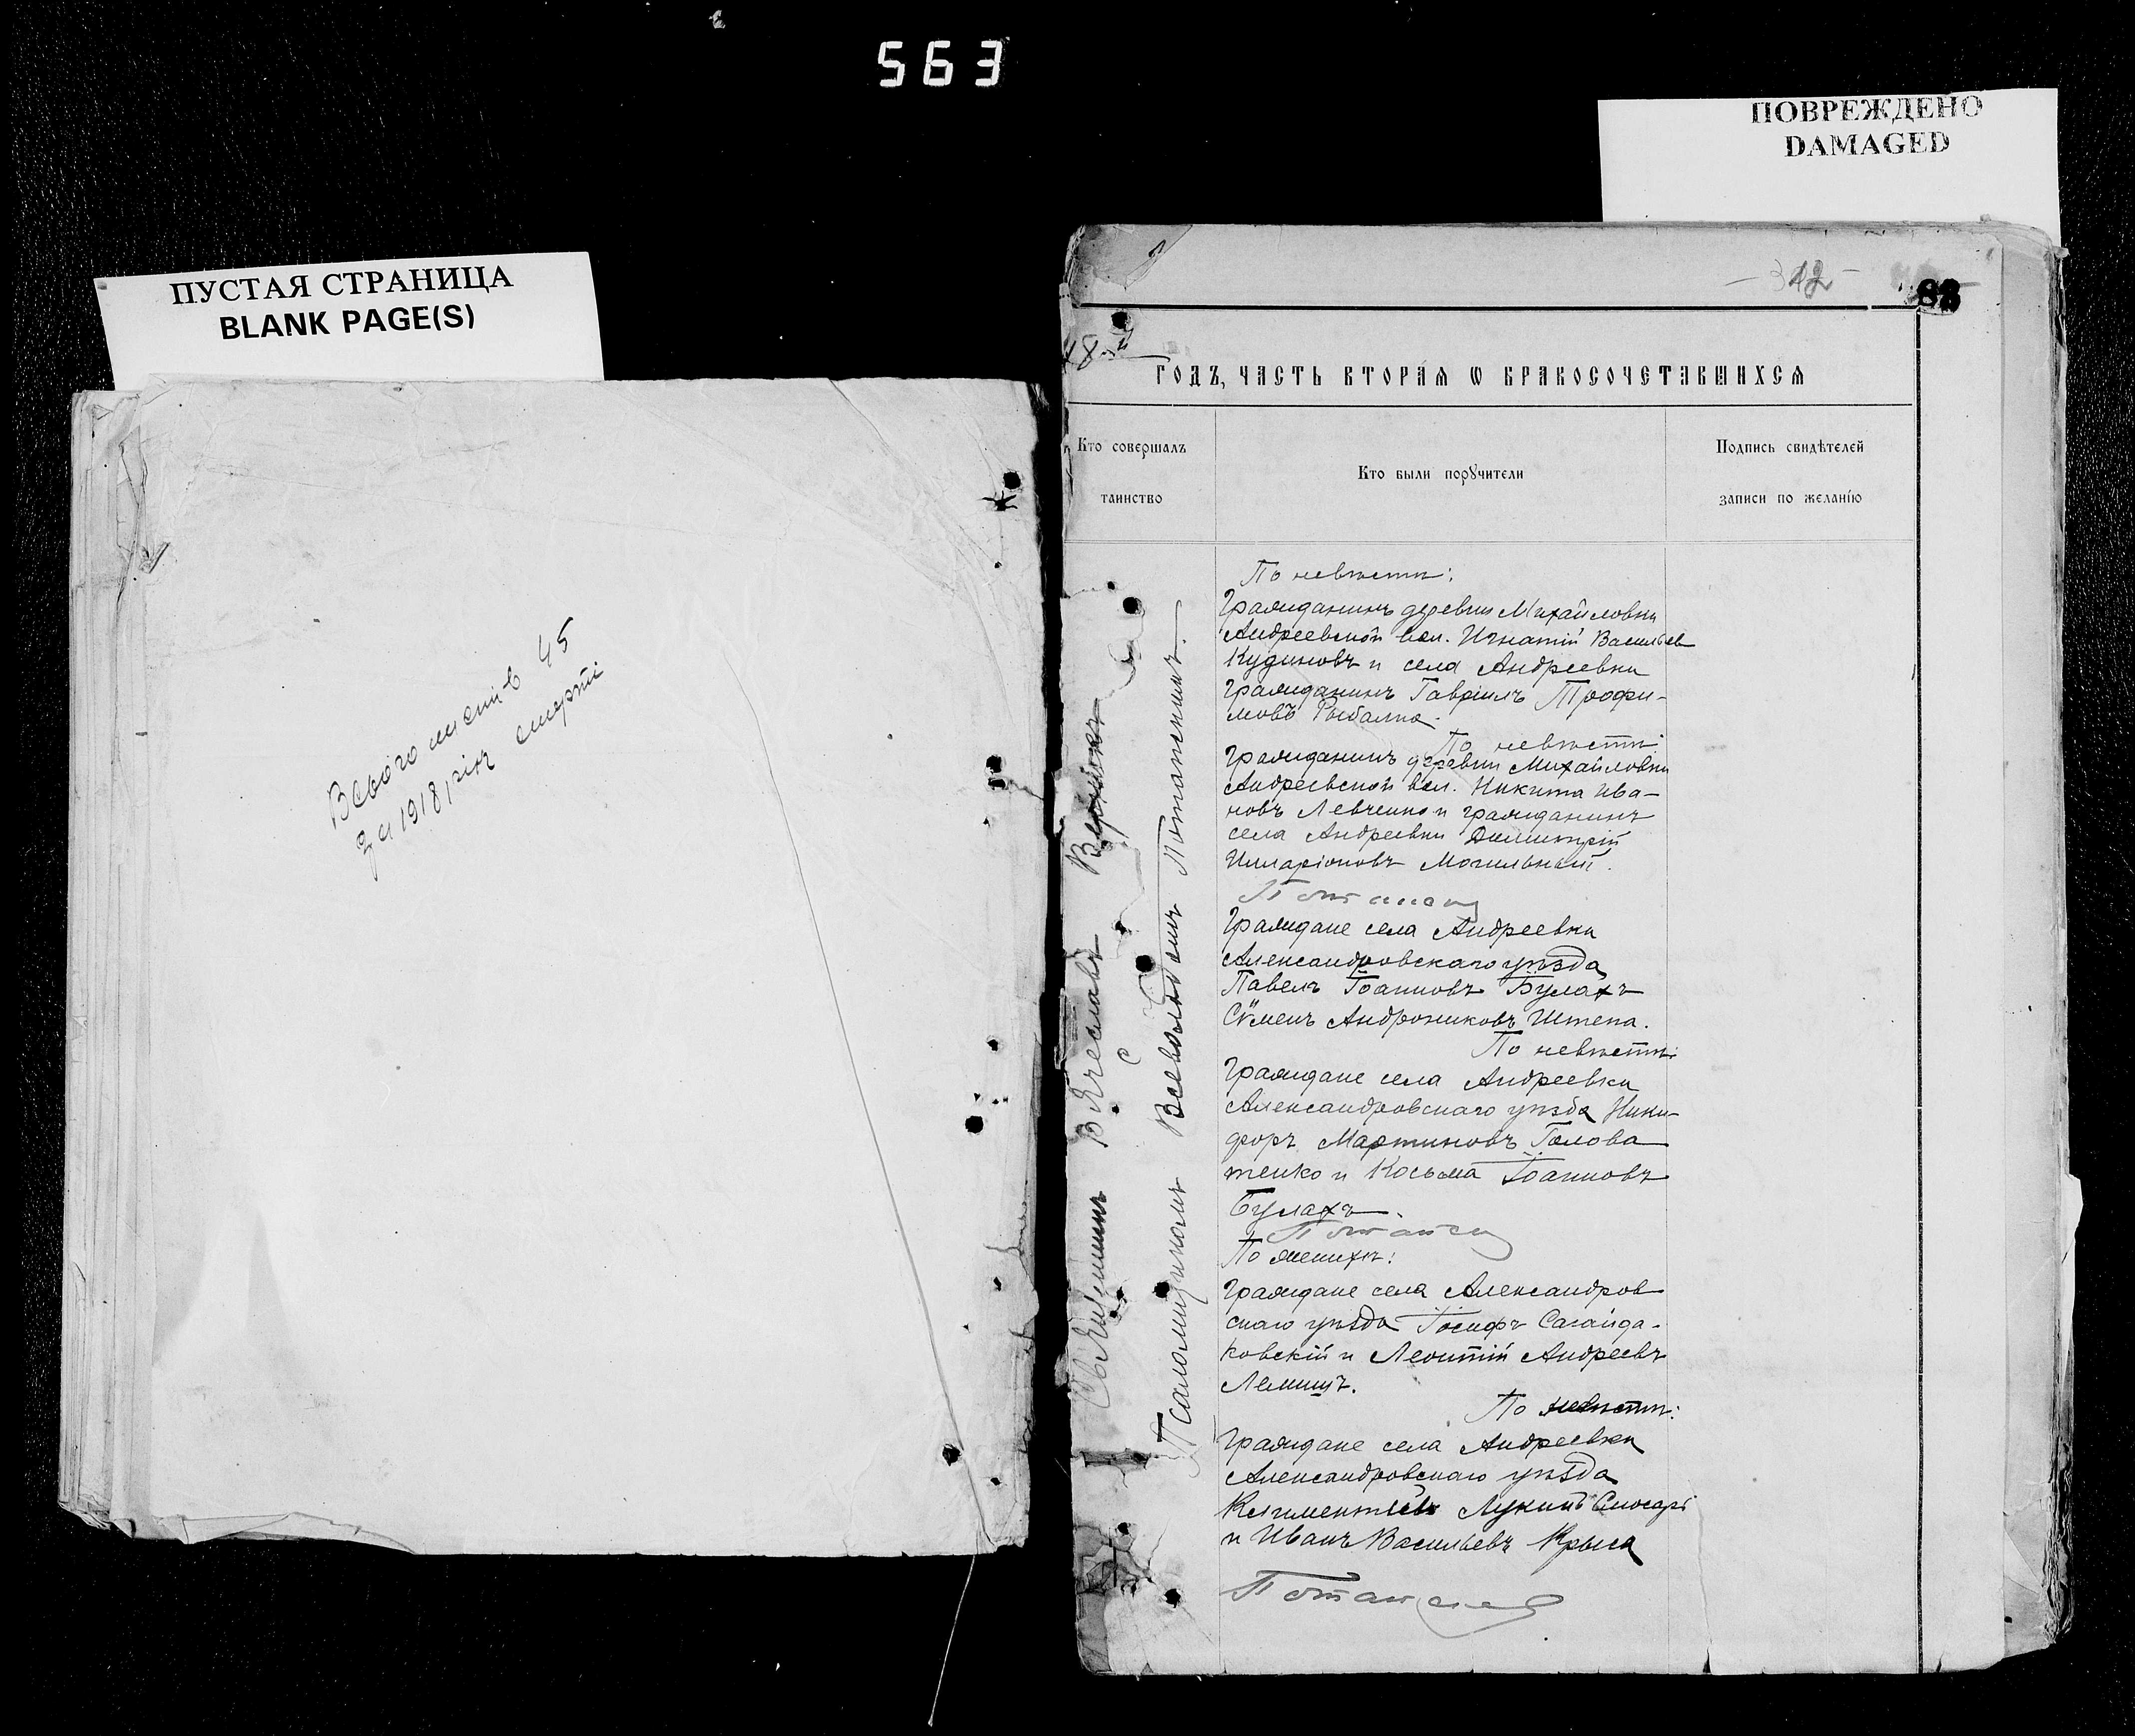 563
ПУСТАЯ СТРАНИЦА
BLANK PAGE(S)
Всього листів 45
за 1918 рік смерті
ПОВРЕЖДЕНО
DAMAGED
83
ГОДЪ, ЧАСТЬ ВТОРАѦ Ѡ БРАКОСОЧЕТАВШИХСѦ
Кто совершалъ
таинство
Кто были порꙋчители
Подпись свидѣтелей
записи по желанію
По невѣстѣ:
Гражданинъ деревни Михайловки
Андреевской вол. Игнатій Васильев
Кудиновъ и села Андреевки
гражданинъ Гавріилъ Трофи-
мовъ Рыбалка.
По невѣстѣ
Гражданинъ деревни Михайловки
Андреевской вол. Никита Ива-
новъ Левченко и гражданинъ
села Андреевки Димитрій
Илларіоновъ Могильный.
Граждане села Андреевки
Александровскаго уѣзда
Павелъ Іоанновъ Булахъ
Сѵменъ Андрониковъ Штепа.
По невѣстѣ:
Граждане села Андреевки
Александровскаго уѣзда Ники-
форъ Мартиновъ Голова
тенко и Косьма Іоанновъ
Булахъ.
По женихѣ:
Граждане села Александров
скаго уѣзда Іосифъ Сагайда-
ковскій и Леонтій Андреевъ
Лемишъ.
По невѣстѣ:
Граждане села Андреевки
Александровскаго уѣзда
Климентъ Лукинъ Слюсарь
и Иванъ Васильевъ Крыса
Священникъ Вячеславъ
с
Псаломщикомъ Всеволодомъ Потапенкимъ.